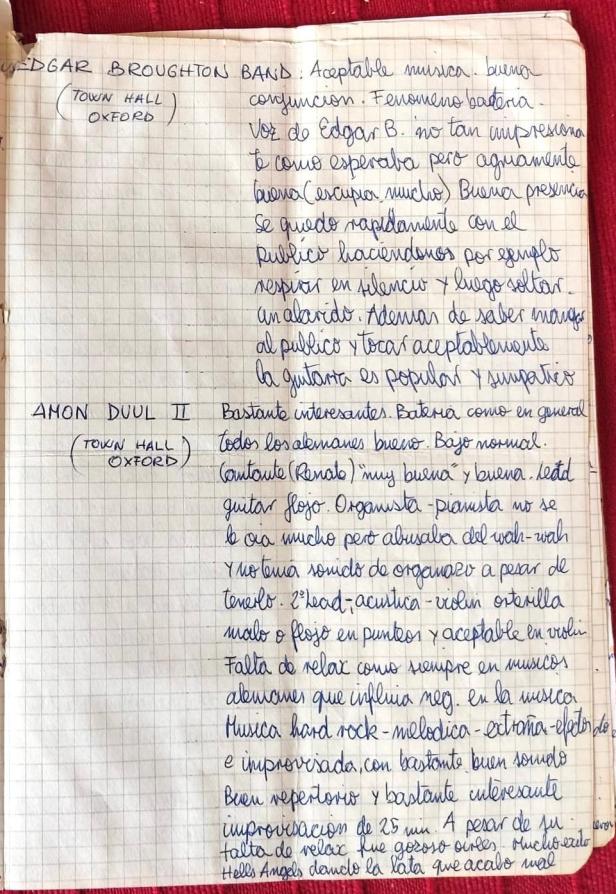 EDGAR BROUGHTON BAND. Aceptable musica. buena
(TOWN HALL OXFORD) conjuncion. Fenomeno bateria.
Voz de Edgar B. no tan impresiona
te como esperaba pero
buena (escupia mucho) Buena presencia
se quedo rapidamente con el
publico haciendonos por ejemplo
respirar en silencio y luego soltar
un alarido. Ademas de saber manejar
al publico y tocar aceptablemente
la guitarra es popular y simpatico
AMON DUUL II Bastante interesantes. Bateria como en general
(TOWN HALL OXFORD) todos los alemanes bueno. Bajo normal.
Cantante (Renate) "muy buena" y buena. Lead
guitar flojo. Organista-pianista no se
le oia mucho pero abusaba del wah-wah
y no tenia sonido de organazo a pesar de
tenerlo. 2º Lead-acustica-violin
malo o flojo en punteos y aceptable en violin
Falta de relax como siempre en musicos
alemanes que influia neg. en la musica
Musica hard rock-melodica-extraña-efectos
e improvisada, con bastante buen sonido
Buen repertorio y bastante interesante
improvisacion de 25 min. A pesar de su
falta de relax fue gozoso oirles. Mucho exito
Hells Angels dando la lata que acabo mal